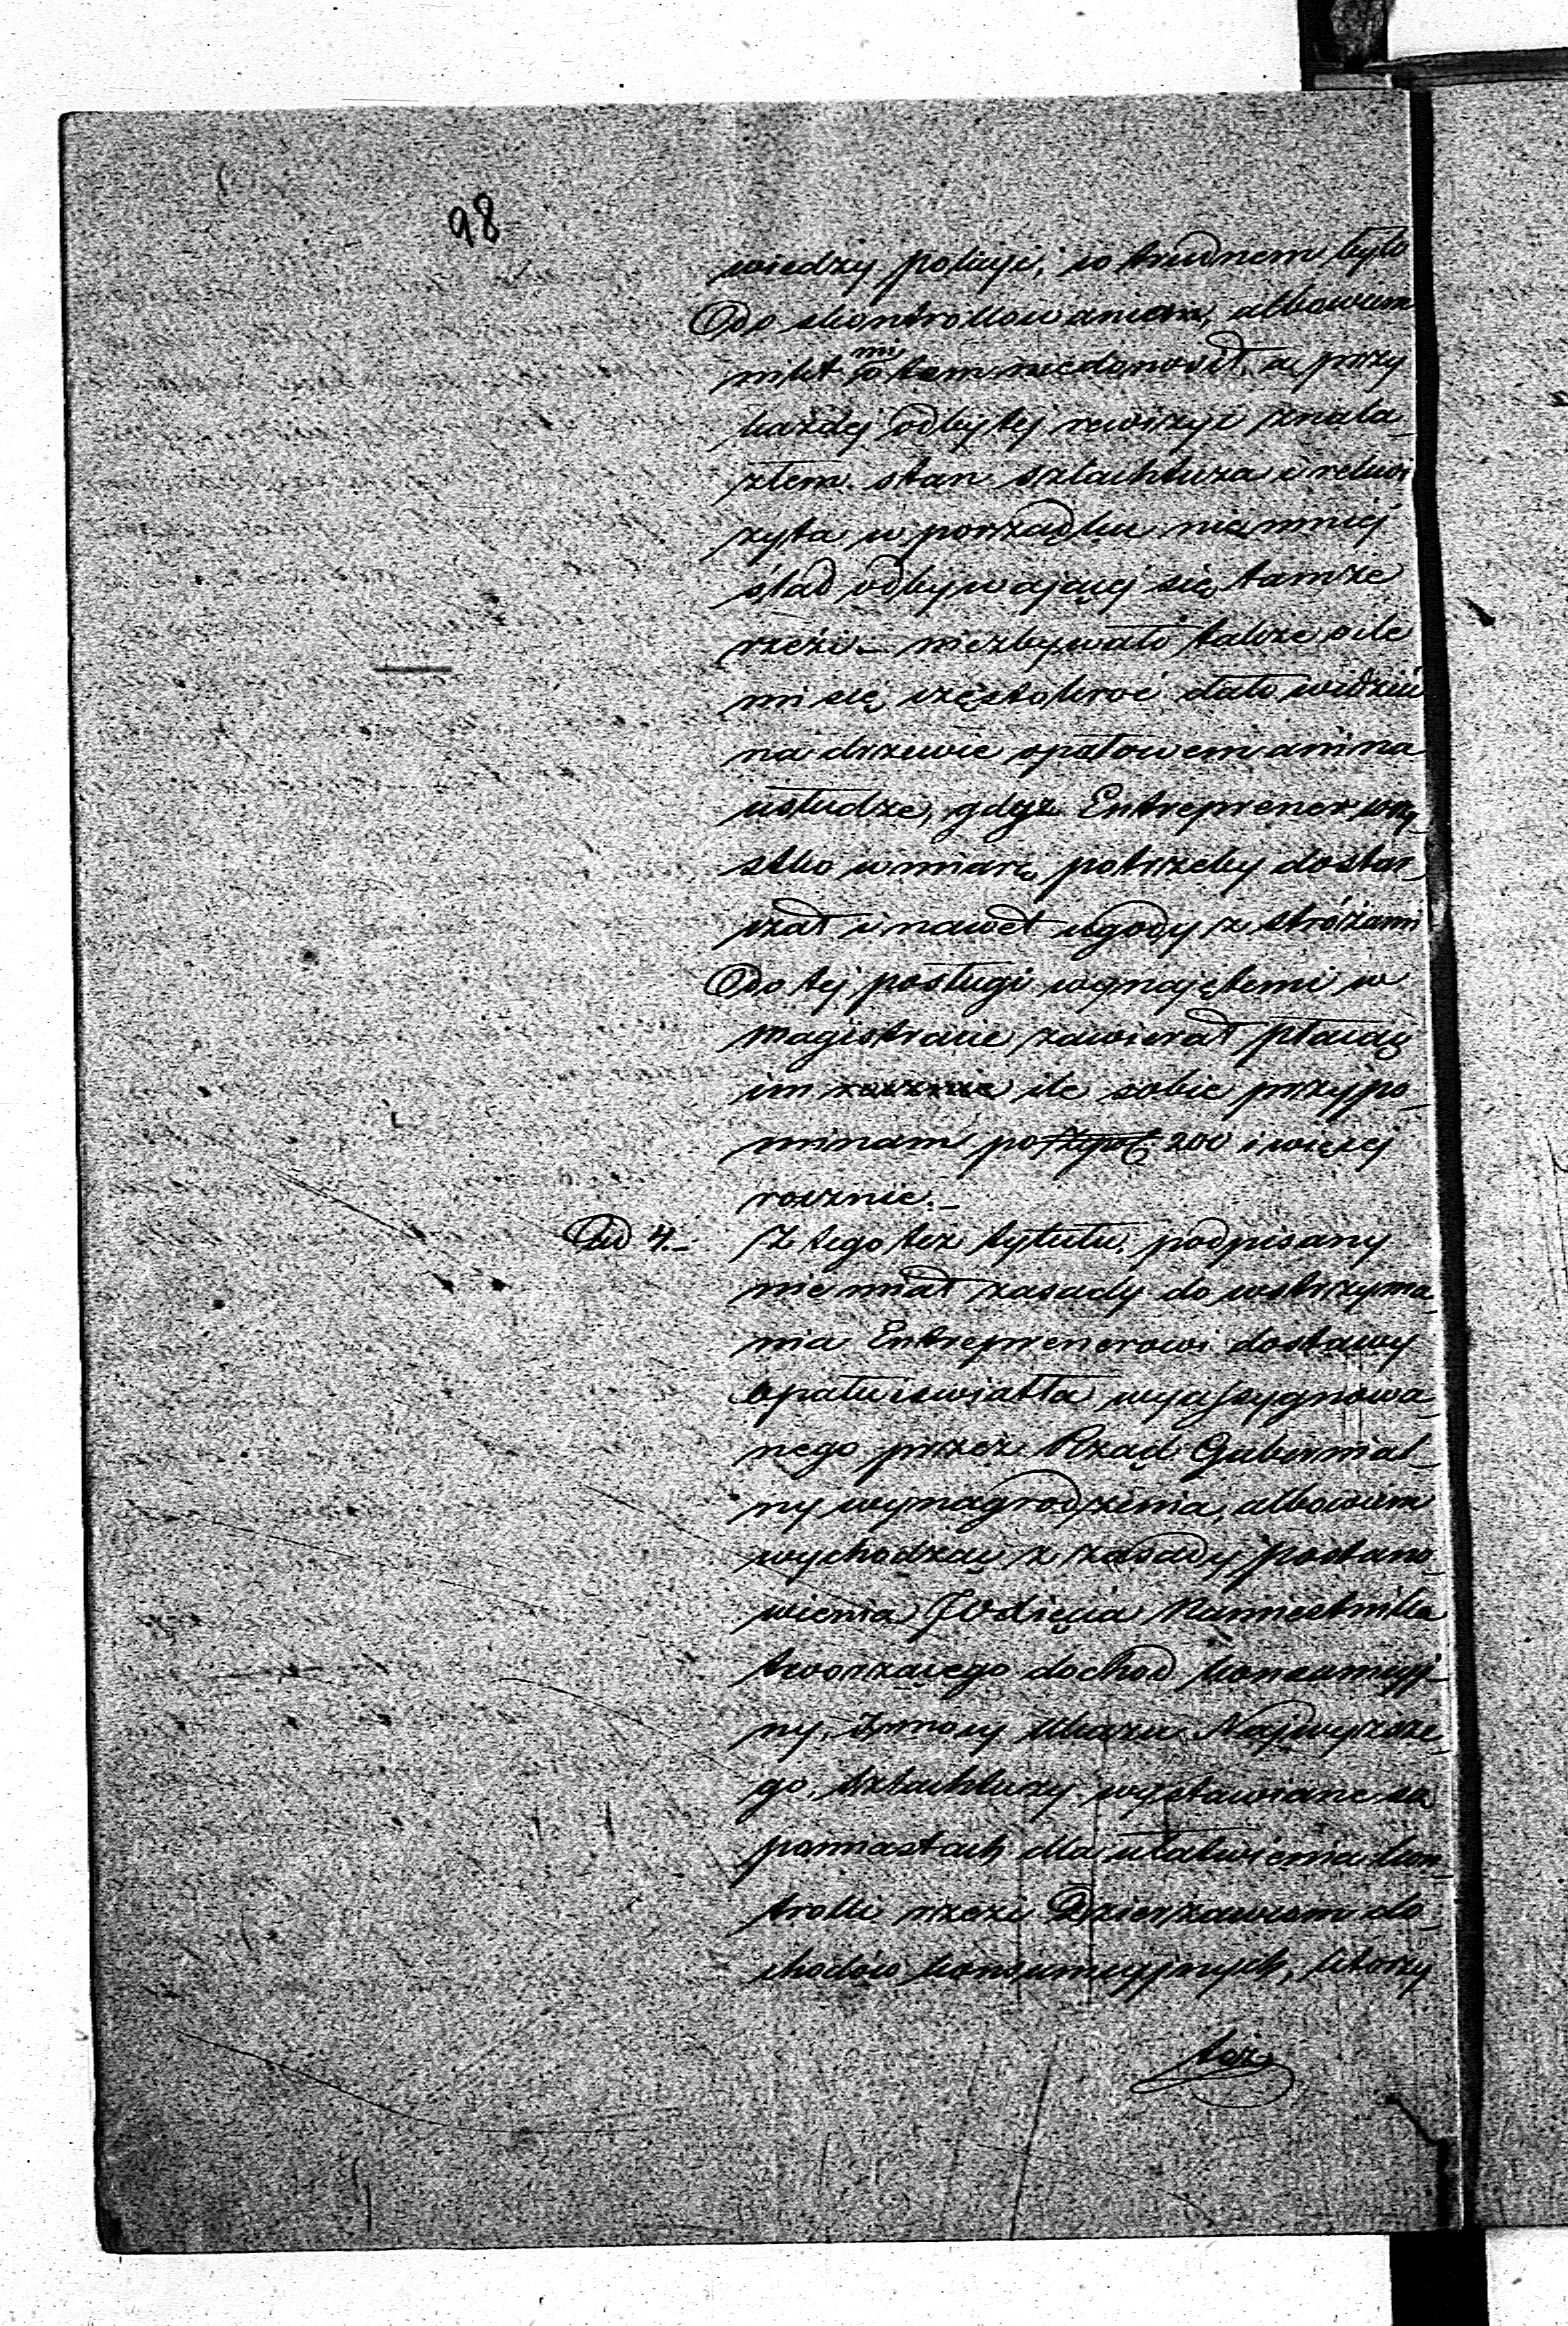 98
wiedzy policyi, co trudnem było
do skontrollowania, albowiem
nikt mi o tem niedonosił, a przy
każdej odbytej rewizyi znala-
złem stan szlachtuza i rekwi
zyta w porządku niemniej
ślad odbywającej się tamże
rzezi. – niezbywało także o ile
mi się częstokroć dało widzieć
na drzewie opałowem ani na
usłudze, gdyż Entreprener wszy-
stko w miarę potrzeby dostar-
czał i nawet ugody z stróżami
do tej posługi wynajętemi w
Magistracie zawierał płacąc
im ile sobie przypo-
minam po 200 i więcej
rocznie. –
Ad 4. – Z tego też tytułu, podpisany
nie miał zasady do wstrzyma-
nia Entreprenerowi dostawy
opału i swiatła wyassygnowa-
nego przez Rząd Gubernial-
ny wynagrodzenia, albowiem
wychodząc z zasady postano-
wienia JO Xięcia Namiestnika
tworzącego dochod konsumcyj-
ny, z mocy Ukazu Najwyższe-
go, szlachtuzy wystawiane są
po miastach dla ułatwienia kon-
trolli rzezi Dzierżawcom do-
chodów konsumcyjnych, którzy
też